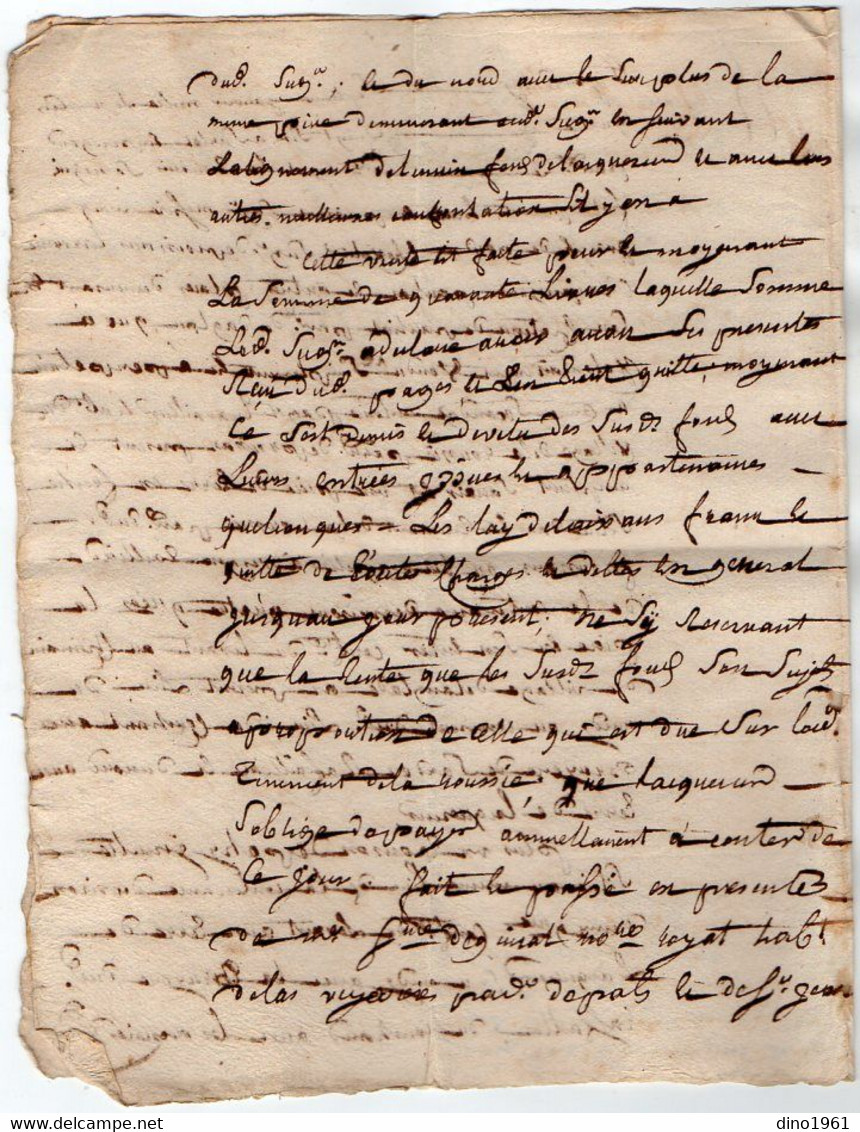 dud. Sug.r, le du nord avec le surplus de la
meme poise demeurant aud. Sugr en suivant
Lalignement delautre fons delaquereur et avec leurs
autres meilleures confrontations sil y en a
Cette vente est faite pour et moyenant
La Somme de quarante Livres laquelle Somme
Led. Sugr. adeclare avoir avant ses presentes
Reçu dud. pages et Len tient quitte, moyenant
Ce sest demis et devetu des susd. fonds avec
Leurs entrées et appartenances
quelconques Les luy delaissans franc et
quitte de Toutes Charges et dettes en general
jusquau jour present, ne sy Reservant
que la Rente que les susd. fonds son sujets
aproportion de celle qui est due sur led.
Tenement dela roussie que laquereur
soblige depayer annuellement à conter de
Ce jour. fait et passé en presentes
de not.re royal hab.t
delas prad. deprats et de s.r jean
dino1961